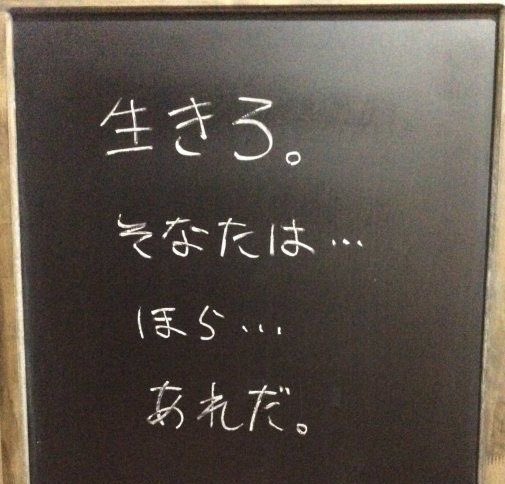 生きろ。
そなたは…
ほら…
あれだ。